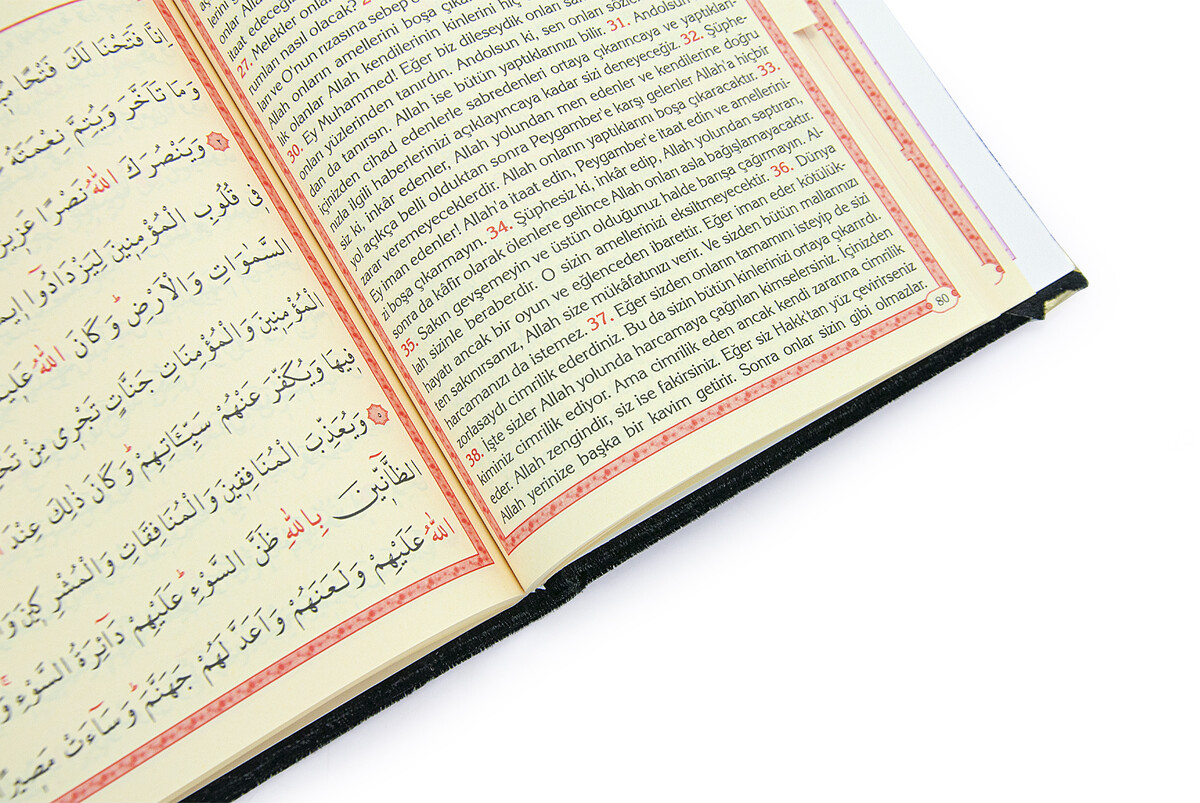 اِنَّا فَتَحْنَا لَكَ فَتْحًا
وَمَا تَاَخَّرَ وَيُتِمَّ نِعْمَتَهُ
وَيَنْصُرَكَ اللّٰهُ نَصْرًا
فِى قُلُوبِ الْمُؤْمِنِينَ لِيَزْدَادُوٓا
السَّمٰوَاتِ وَالْاَرْضِ وَكَانَ اللّٰهُ
الْمُؤْمِنِينَ وَالْمُؤْمِنَاتِ جَنَّاتٍ تَجْرِى مِنْ
فِيهَا وَيُكَفِّرَ عَنْهُمْ سَيِّـَٔاتِهِمْ وَكَانَ ذٰلِكَ عِنْدَ
وَيُعَذِّبَ الْمُنَافِقِينَ وَالْمُنَافِقَاتِ وَالْمُشْرِكِينَ
الظَّٓانِّينَ بِاللّٰهِ ظَنَّ السَّوْءِ عَلَيْهِمْ دَٓائِرَةُ السَّوْءِ
اللّٰهُ عَلَيْهِمْ وَلَعَنَهُمْ وَاَعَدَّ لَهُمْ جَهَنَّمَ وَسَٓاءَتْ مَصِيرًا
itaat edeceğiz
27. Melekler onların
rumları nasıl olacak?
lan ve O'nun rızasına sebep
Allah onların amellerini boşa çıka
lık olanlar Allah kendilerinin kinlerini hiç
30. Ey Muhammed! Eğer biz dileseydik onları
onları yüzlerinden tanırdın. Andolsun ki, sen onları sözle
dan da tanırsın. Allah ise bütün yaptıklarınızı bilir. 31. Andolsun
içinizden cihad edenlerle sabredenleri ortaya çıkarıncaya ve yaptıkları-
nızla ilgili haberlerinizi açıklayıncaya kadar sizi deneyeceğiz. 32. Şüphe-
siz ki, inkâr edenler, Allah yolundan men edenler ve kendilerine doğru
yol açıkça belli olduktan sonra Peygamber'e karşı gelenler Allah'a hiçbir
zarar veremeyeceklerdir. Allah onların yaptıklarını boşa çıkaracaktır. 33.
Ey iman edenler! Allah'a itaat edin, Peygamber'e itaat edin ve amellerini-
zi boşa çıkarmayın. 34. Şüphesiz ki, inkâr edip, Allah yolundan saptıran,
sonra da kâfir olarak ölenlere gelince Allah onları asla bağışlamayacaktır.
35. Sakın gevşemeyin ve üstün olduğunuz halde barışa çağırmayın. Al-
lah sizinle beraberdir. O sizin amellerinizi eksiltmeyecektir. 36. Dünya
hayatı ancak bir oyun ve eğlenceden ibarettir. Eğer iman eder kötülük-
ten sakınırsanız, Allah size mükâfatınızı verir. Ve sizden bütün mallarınızı
harcamanızı da istemez. 37. Eğer sizden onların tamamını isteyip de sizi
zorlasaydı cimrilik ederdiniz. Bu da sizin bütün kinlerinizi ortaya çıkarırdı.
38. İşte sizler Allah yolunda harcamaya çağrılan kimselersiniz. İçinizden
kiminiz cimrilik ediyor. Ama cimrilik eden ancak kendi zararına cimrilik
eder. Allah zengindir, siz ise fakirsiniz. Eğer siz Hakk'tan yüz çevirirseniz
Allah yerinize başka bir kavim getirir. Sonra onlar sizin gibi olmazlar.
80